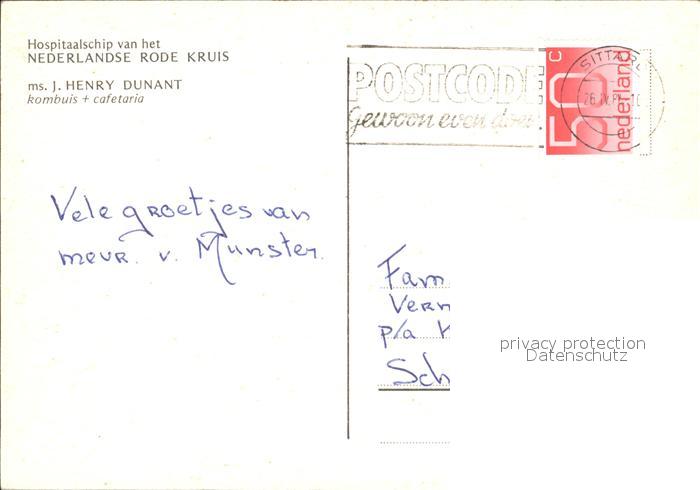 Hospitaalschip van het
NEDERLANDSE RODE KRUIS
ms. J. HENRY DUNANT
kombuis + cafetaria
POSTCODE
gewoon even doen
SITTARD
50 c
nederland
Vele groetjes van
mevr. v. Munster.
Fam
Vern
p/a
Sch
privacy protection
Datenschutz